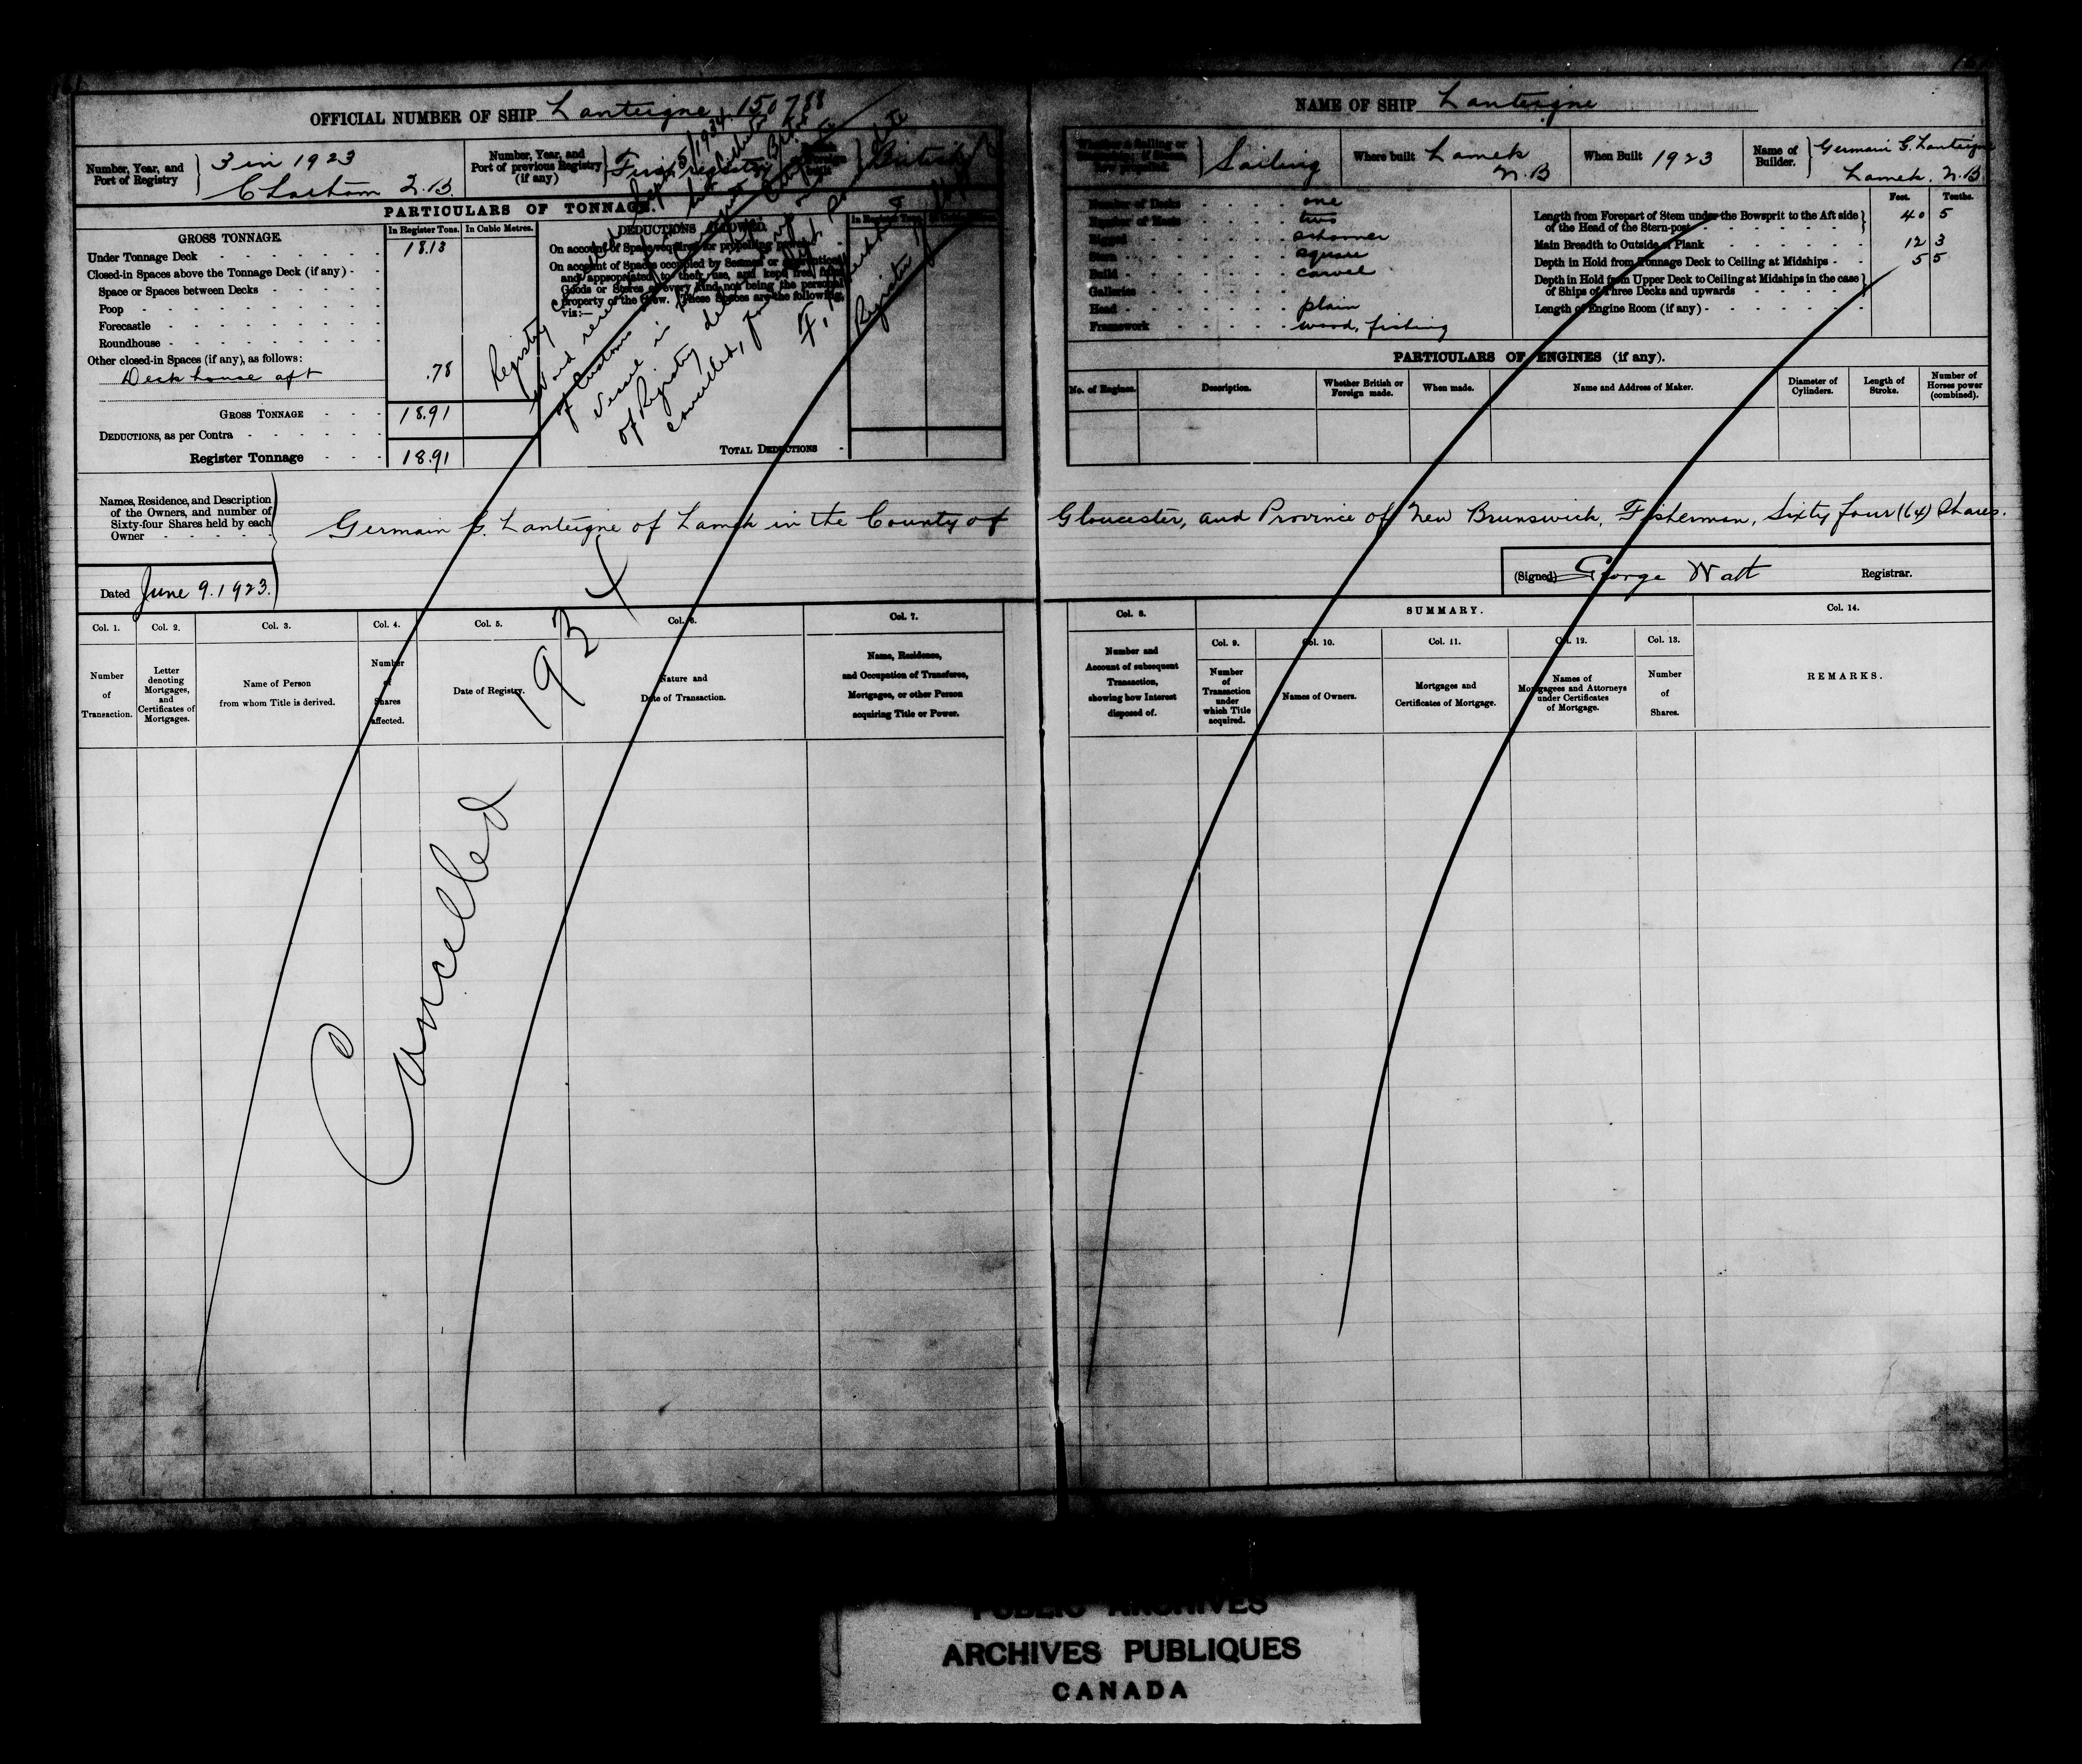 OFFICIAL NUMBER OF SHIP Lanteigne 150788
Number, Year, and Port of Registry
3 in 1923
Chatham N.B.
Number, Year, and Port of previous Registry (if any)
First registry
British
PARTICULARS OF TONNAGE.
GROSS TONNAGE.
In Register Tons. In Cubic Metres.
Under Tonnage Deck 18.13
Closed-in Spaces above the Tonnage Deck (if any)
Space or Spaces between Decks
Poop
Forecastle
Roundhouse
Other closed-in Spaces (if any), as follows:
Deck house aft .78
GROSS TONNAGE 18.91
DEDUCTIONS, as per Contra
Register Tonnage 18.91
DEDUCTIONS ALLOWED.
On account of Space required for propelling power
On account of Spaces occupied by Seamen or Apprentices
and appropriated to their use, and kept free from
Goods or Stores of every kind, not being the personal
property of the Crew. These Spaces are the following,
viz:—
TOTAL DEDUCTIONS
Registry
of Customs
of Registry
cancelled,
Registrar
Names, Residence, and Description
of the Owners, and number of
Sixty-four Shares held by each
Owner
Germain G. Lanteigne of Lamek in the County of
Dated June 9. 1923.
Col. 1. Col. 2. Col. 3. Col. 4. Col. 5. Col. 6. Col. 7.
Number of Transaction.
Letter denoting Mortgages, and Certificates of Mortgages.
Name of Person from whom Title is derived.
Number of Shares affected.
Date of Registry.
Nature and Date of Transaction.
Name, Residence, and Occupation of Transferee, Mortgagee, or other Person acquiring Title or Power.
Cancelled 1934
NAME OF SHIP Lanteigne
Sailing
Where built Lamek N.B
When Built 1923
Name of Builder.
Germain G. Lanteigne
Lamek. N.B.
Number of Decks one
Number of Masts two
Rigged schooner
Stern square
Build carvel
Galleries
Head plain
Framework wood, fishing
Feet. Tenths.
Length from Forepart of Stem under the Bowsprit to the Aft side of the Head of the Stern-post 40 5
Main Breadth to Outside of Plank 12 3
Depth in Hold from Tonnage Deck to Ceiling at Midships 5 5
Depth in Hold from Upper Deck to Ceiling at Midships in the case of Ships of Three Decks and upwards
Length of Engine Room (if any)
PARTICULARS OF ENGINES (if any).
No. of Engines.
Description.
Whether British or Foreign made.
When made.
Name and Address of Maker.
Diameter of Cylinders.
Length of Stroke.
Number of Horses power (combined).
Gloucester, and Province of New Brunswick, Fisherman, Sixty four (64) Shares.
(Signed) George Watt Registrar.
Col. 8.
SUMMARY.
Col. 14.
Col. 9. Col. 10. Col. 11. Col. 12. Col. 13.
Number and Account of subsequent Transaction, showing how Interest disposed of.
Number of Transaction under which Title acquired.
Names of Owners.
Mortgages and Certificates of Mortgage.
Names of Mortgagees and Attorneys under Certificates of Mortgage.
Number of Shares.
REMARKS.
PUBLIC ARCHIVES
ARCHIVES PUBLIQUES
CANADA